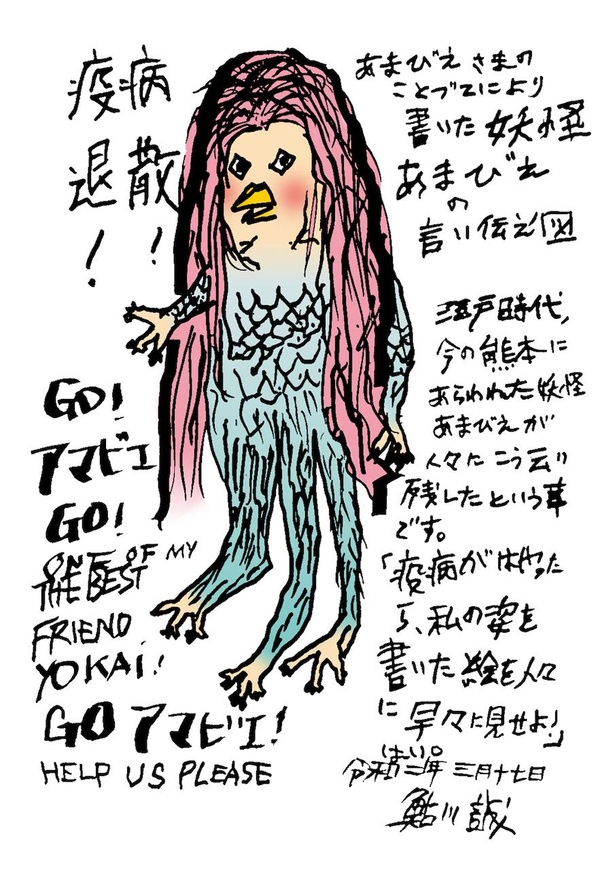 疫病
退散
！！
あまびえさまの
ことづてにより
書いた妖怪
あまびえ
の
言い伝え図
江戸時代、
今の熊本に
あらわれた妖怪
あまびえが
人々にこう云い
残したという事
です。
「疫病がはやった
ら、私の姿を
書いた絵を人々
に早々に見せよ!」
はい。
令和二年 三月十七日
鮎川誠
GO!
アマビエ
GO!
ONE OF MY
THE BEST
FRIEND
YOKAI!
GO アマビエ!
HELP US PLEASE